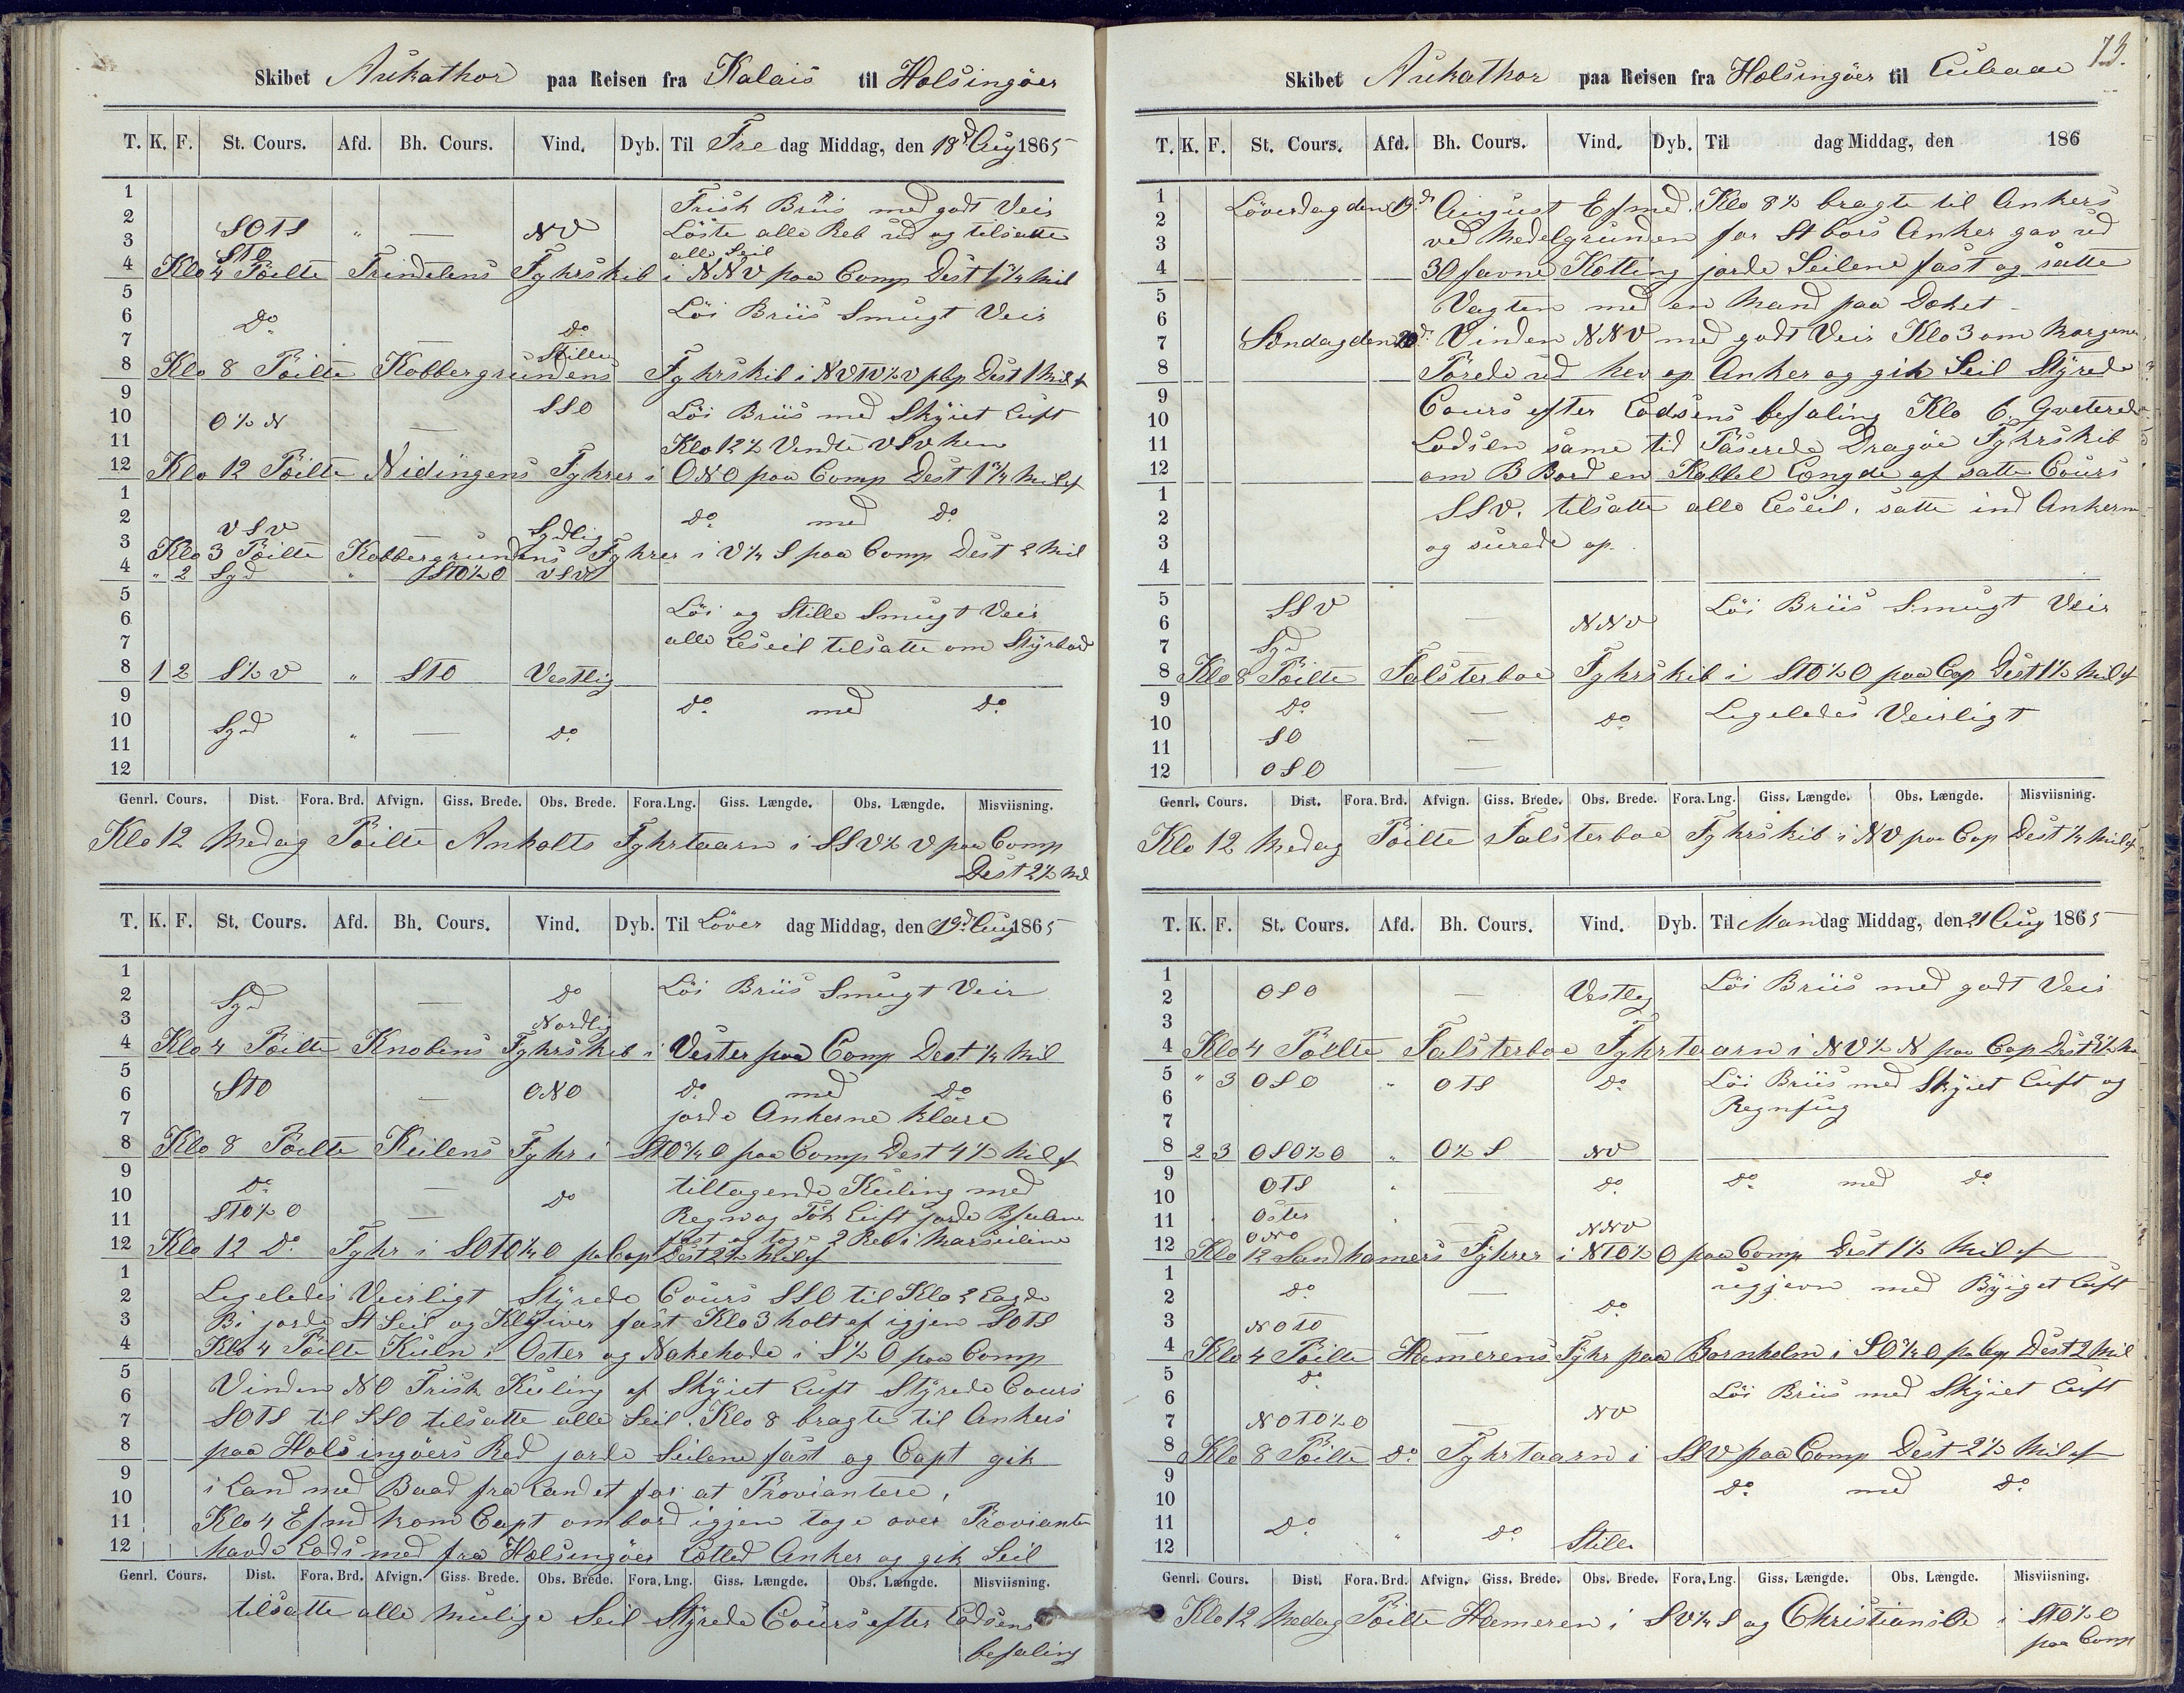 Skibet Aukathor paa Reisen fra Kalais til Holsingöer
T. K. F. St. Cours. Afd. Bh. Cours. Vind. Dyb. Til Fre dag Middag, den 18d Aug 1865
1 Frisk Briis med godt Veir
2 SOTS " — NV Löste alle Reb ud og tilsatte
3 STO alle Seil
4 Klo 4 Peilte Trindelens Fyhrskib i NNV paa Comp Dest 1 3/4 Mil
5 Löi Briis Smugt Veir
6 Do
7 — Do
8 Klo 8 Peilte Kobbergrundens Stille Fyhrskib i NVTV½V pCp Dest 1 Mil af
9 SSO Löi Briis med Skyiet Luft
10 O½N —
11 Klo 12½ Vendte VSV hen
12 Klo 12 Peilte Nidingens Fyhrer i ONO paa Comp Dest 1 3/4 Mil af
1
2 VSV Sydlig Do med Do
3 Klo 3 Peilte Kobbergrundens Fyhrer i V¼S paa Comp Dest 2 Mil
4 " 2 Syd " STO½O VSV
5
6 Löi og Stille Smugt Veir
7 alle Leseil tilsatte om Styrbord
8 1 2 S½V " STO Vestlig
9 Do med Do
10 Syd " — Do
11
12
Genrl. Cours. Dist. Fora. Brd. Afvign. Giss. Brede. Obs. Brede. Fora. Lng. Giss. Længde. Obs. Længde. Misviisning.
Klo 12 Medag Peilte Anholts Fyhrtaarn i SSV½V paa Comp
Dest 2½ Mil
T. K. F. St. Cours. Afd. Bh. Cours. Vind. Dyb. Til Löver dag Middag, den 19d Aug 1865
1 Löi Briis Smugt Veir
2 Syd — Do
3 Nordlig
4 Klo 4 Peilte Knobens Fyhrskib i Vester paa Comp Dest ¼ Mil
5
6 STO — ONO Do med Do
7 jorde Ankerne klare
8 Klo 8 Peilte Keilens Fyhr i STO¾O paa Comp Dest 4½ Mil af
9 Do — Do tiltagende Kuling med
10 STO½O —
11 Regn og Tök Luft jorde
12 fast og toge 2 Reb i Marseilene
Klo 12 Do Fyhr i SOTO¼O pa Cop Dest 2½ Mil af
1
2 Ligeledes Veirligt Styrede Cours SSO til Klo 2 Lagde
3 Bi jorde St Seil og Klyiver fast Klo 3 holt af igjen SOTS
4 Klo 4 Peilte Kuln i Oster og Nakehode i S½O paa Comp
5 Vinden NO Frisk Kuling af Skyiet Luft Styrede Cours
6
7 SOTS til SSO tilsatte alle Seil. Klo 8 bragte til Ankers
8 paa Holsingöers Red jorde Seilene fast og Capt gik
9 i Land med Baad fra Landet for at Proviantere,
10
11 Klo 4 Efmd kom Capt ombord igjen toge over Provianten
12 havde Lods med fra Helsingöer Letted Anker og gik Seil
Genrl. Cours. Dist. Fora. Brd. Afvign. Giss. Brede. Obs. Brede. Fora. Lng. Giss. Længde. Obs. Længde. Misviisning.
tilsatte alle mulige Seil Styrede Cours efter Lodsens
befaling
73.
Skibet Aukathor paa Reisen fra Holsingöer til Lubaae
T. K. F. St. Cours. Afd. Bh. Cours. Vind. Dyb. Til dag Middag, den 186
1 Löverdag den 19d August Efmed. Klo 8½ bragte til Ankers
2 ved Medelgrunden for St bors Anker gav ud
3
4 30 favne Ketting jorde Seilene fast og satte
5 Vagten med en Mand paa Deket
6
7 Söndag den 20d Vinden NNV med godt Veir Klo 3 om Morgenen
8 Törede ud hev op Anker og gik Seil Styrede
9 Cours efter Lodsens befaling Klo 6 Qveterede
10
11 Lodsen same tid Paserede Dragöe Fyhrskib
12 om B Bord en Kabbel Længde af satte Cours
1 SSV. tilsatte alle Leseil. satte ind Ankerne
2
3 og surede op.
4
5 SSV Löi Briis Smugt Veir
6 — NNV
7 Syd —
8 Klo 8 Peilte Falsterboe Fyhrskib i STO½O paa Cop Dest 1½ Mil af
9 Do — Do Ligeledes Veirligt
10
11 SO —
12 OSO —
Genrl. Cours. Dist. Fora. Brd. Afvign. Giss. Brede. Obs. Brede. Fora. Lng. Giss. Længde. Obs. Længde. Misviisning.
Klo 12 Medag Peilte Falsterboe Fyhrskib i NV paa Cop Dest ¼ Mil af
T. K. F. St. Cours. Afd. Bh. Cours. Vind. Dyb. Til Man dag Middag, den 21 Aug 1865
1 Löi Briis med godt Veir
2 OSO — Vestlig
3
4 Klo 4 Peilte Falsterboe Fyhrtaarn i NV½N paa Cop Dest
5 " 3 OSO " OTS Do Löi Briis med Skyiet Luft og
6 Regnfug
7
8 2 3 OSO½O " O½S NV
9 OTS " — Do Do med Do
10
11 Öster —
12 ONO NNV
Klo 12 Sandhamers Fyhrer i NTO½O paa Comp Dest 1½ Mil af
1 ugjevn med Byiget Luft
2 Do — Do
3 NOTO —
4 Klo 4 Peilte Hamerens Fyhr paa Bornholm i SO¾O pa Cop Dest 2 Mil
5 Do
6 Löi Briis med Skyiet Luft
7 NOTO½O — NV
8 Klo 8 Peilte Do Fyhrtaarn i SSV paa Comp Dest 2½ Mil af
9 Do med Do
10
11 Do " Do
12 Stille
Genrl. Cours. Dist. Fora. Brd. Afvign. Giss. Brede. Obs. Brede. Fora. Lng. Giss. Længde. Obs. Længde. Misviisning.
Klo 12 Medag Peilte Hameren i SV¼S og ChristiansOe i STO½O
paa Comp